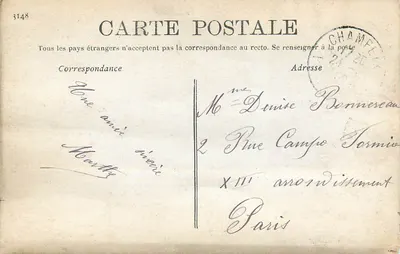 3148
CARTE POSTALE
Tous les pays étrangers n'acceptent pas la correspondance au recto. Se renseigner à la poste
Correspondance
Adresse
CHAMPLI
Une amie
sincère
Marthe
Mme Denise Bonnereau
2 Rue Campo Formio
XIII arrondissement
Paris